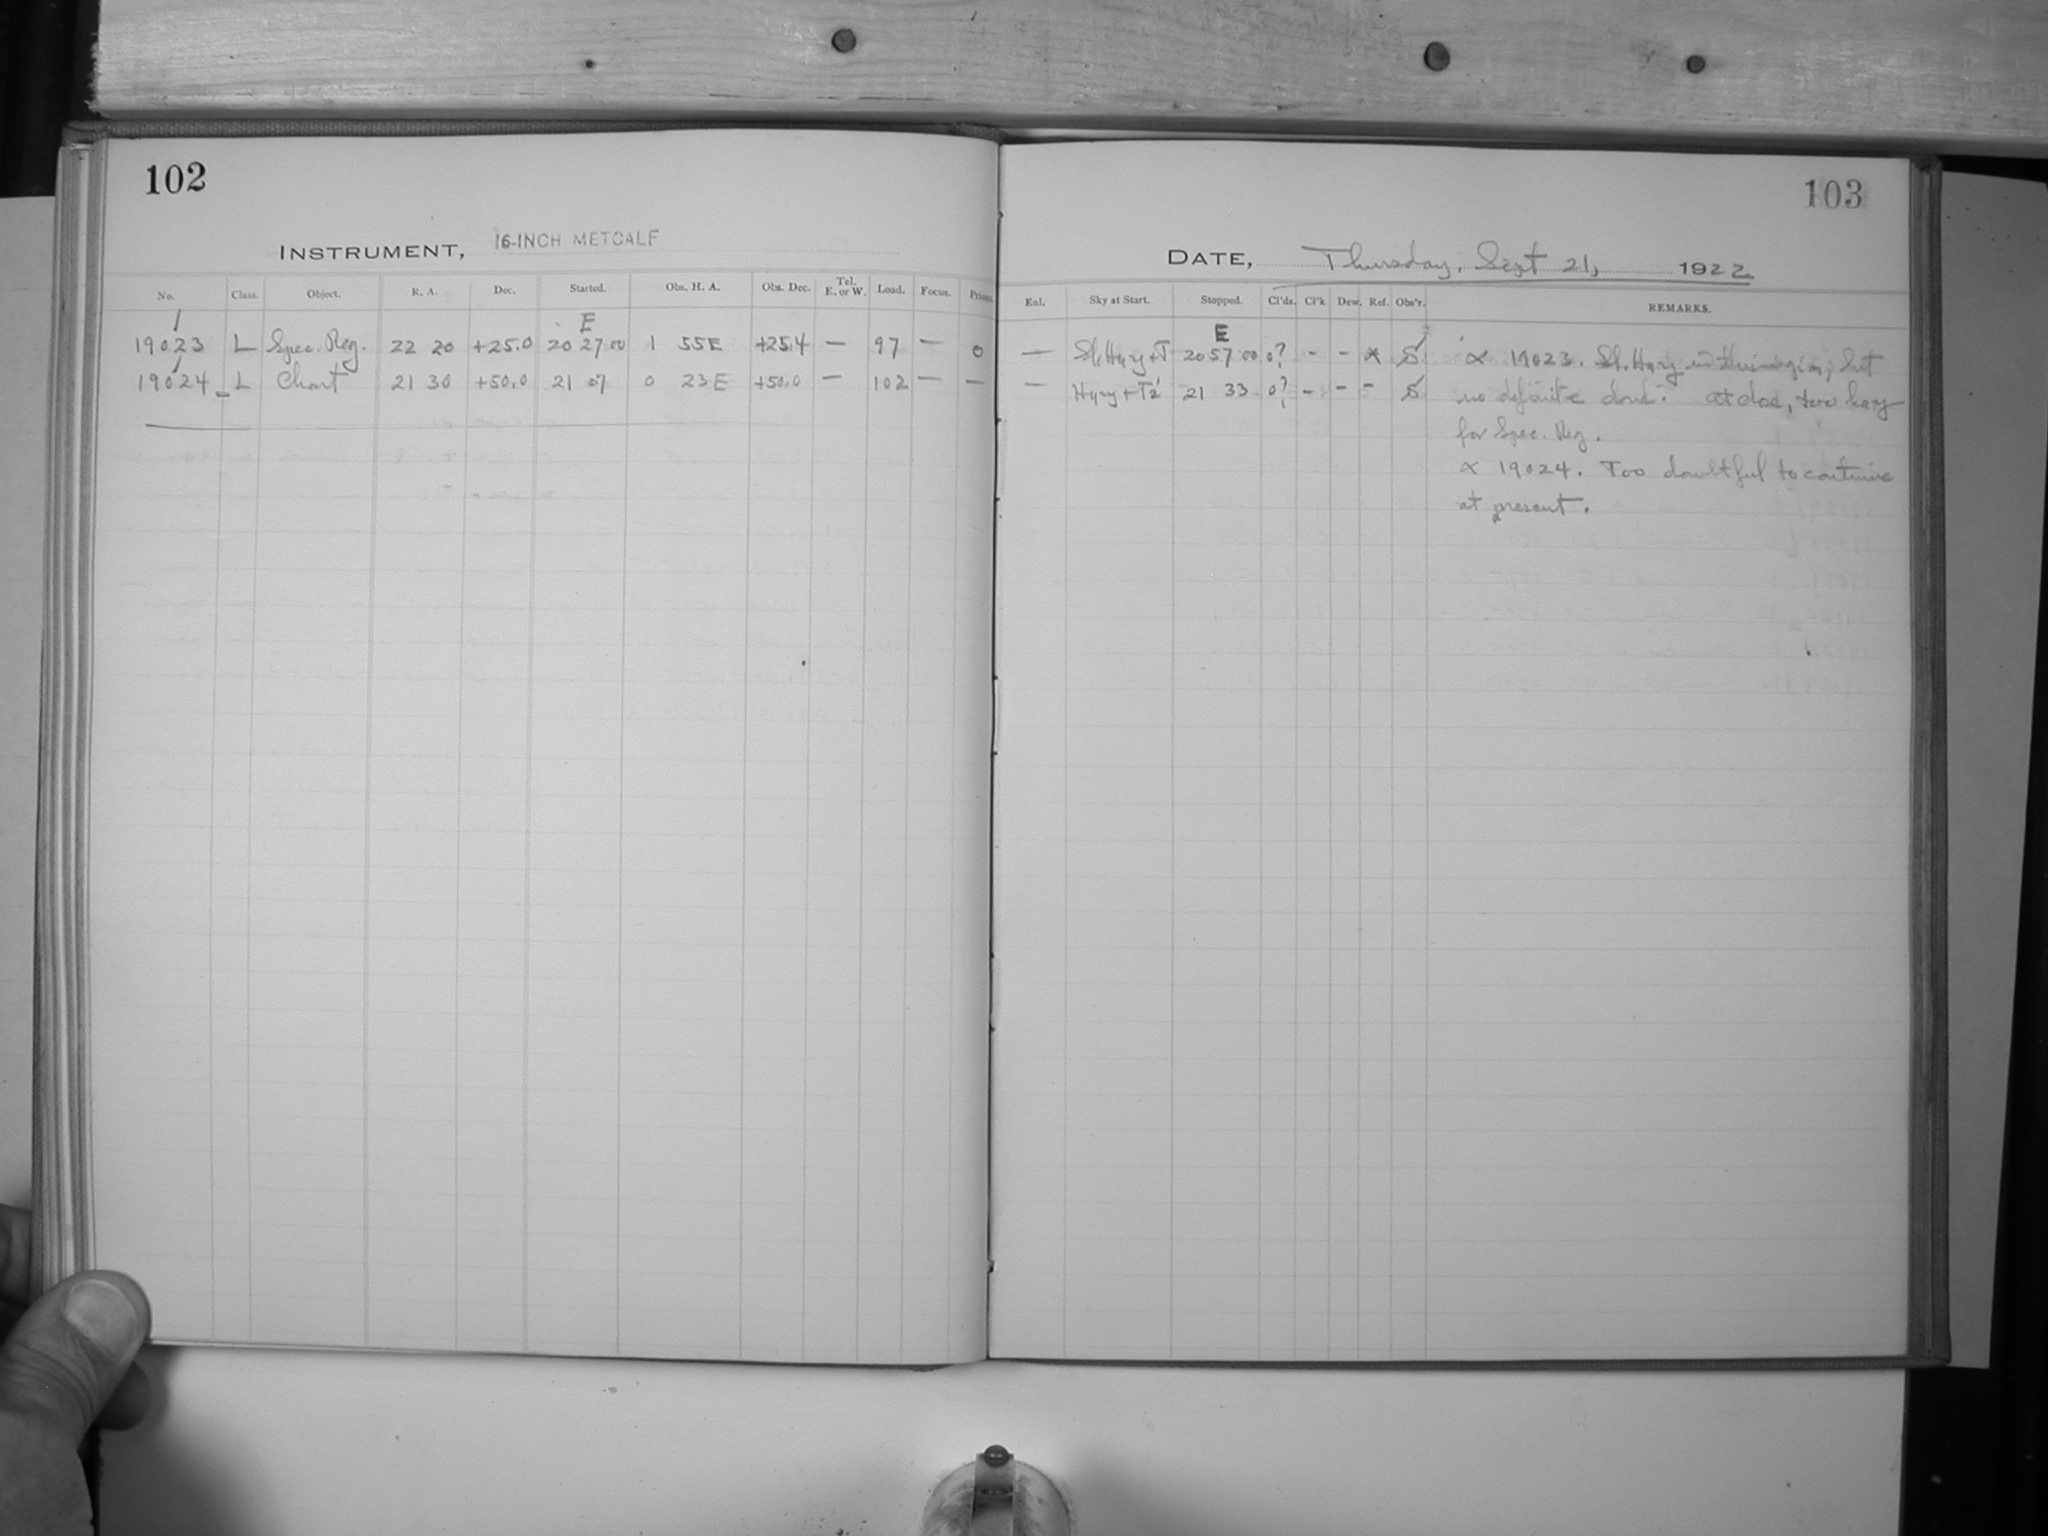 102
INSTRUMENT, 16-INCH METCALF
No. Class. Object. R. A. Dec. Started. Obs. H. A. Obs. Dec. Tel. E. or W. Load. Focus. Prism.
E
19023 L Spec. Reg. 22 20 +25.0 20 27 00 1 55E +25.4 — 97 — 0
19024 L Chart 21 30 +50.0 21 07 0 23E +50.0 — 102 — —
103
DATE, Thursday, Sept 21, 1922
Enl. Sky at Start. Stopped. Cl'ds. Cl'k Dew. Ref. Obs'r. REMARKS.
E
— Sl. Hazy + T 20 57 00 0? - - * S ∝ 19023. Sl. Hazy but
— Hazy + 21 33 0? - - - S no definite cloud. at close, too hazy
for Spec. Reg.
∝ 19024. Too doubtful to continue
at present.